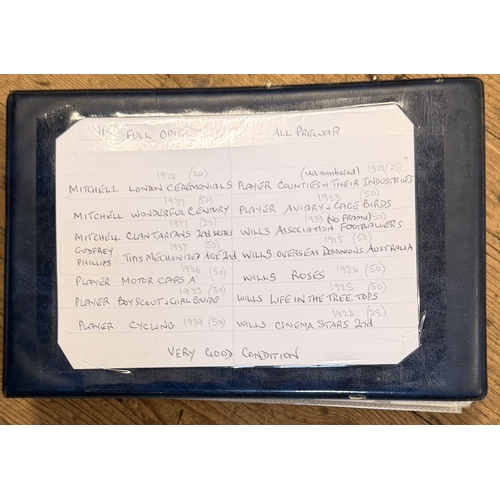 FULL ALL PREWAR
1928 (50) (unnumbered) 1910 (25)
MITCHELL LONDON CEREMONIALS PLAYER COUNTIES + THEIR INDUSTRIES
1937 (50) 1933 (50)
MITCHELL WONDERFUL CENTURY PLAYER AVIARY + CAGE BIRDS
1927 (25) 1939 (NO FRAME) (50)
MITCHELL CLAN TARTANS 2nd SERIES WILLS ASSOCIATION FOOTBALLERS
GODFREY 1937 (50) 1915 (50)
PHILLIPS THIS MECHANIZED AGE 2nd WILLS OVERSEAS DOMINIONS AUSTRALIA
1936 (50) 1926 (50)
PLAYER MOTOR CARS 'A' WILLS ROSES
1933 (50) 1925 (50)
PLAYER BOY SCOUT + GIRL GUIDE WILLS LIFE IN THE TREE TOPS
1928 (25)
PLAYER CYCLING 1939 (50) WILLS CINEMA STARS 2nd
VERY GOOD CONDITION